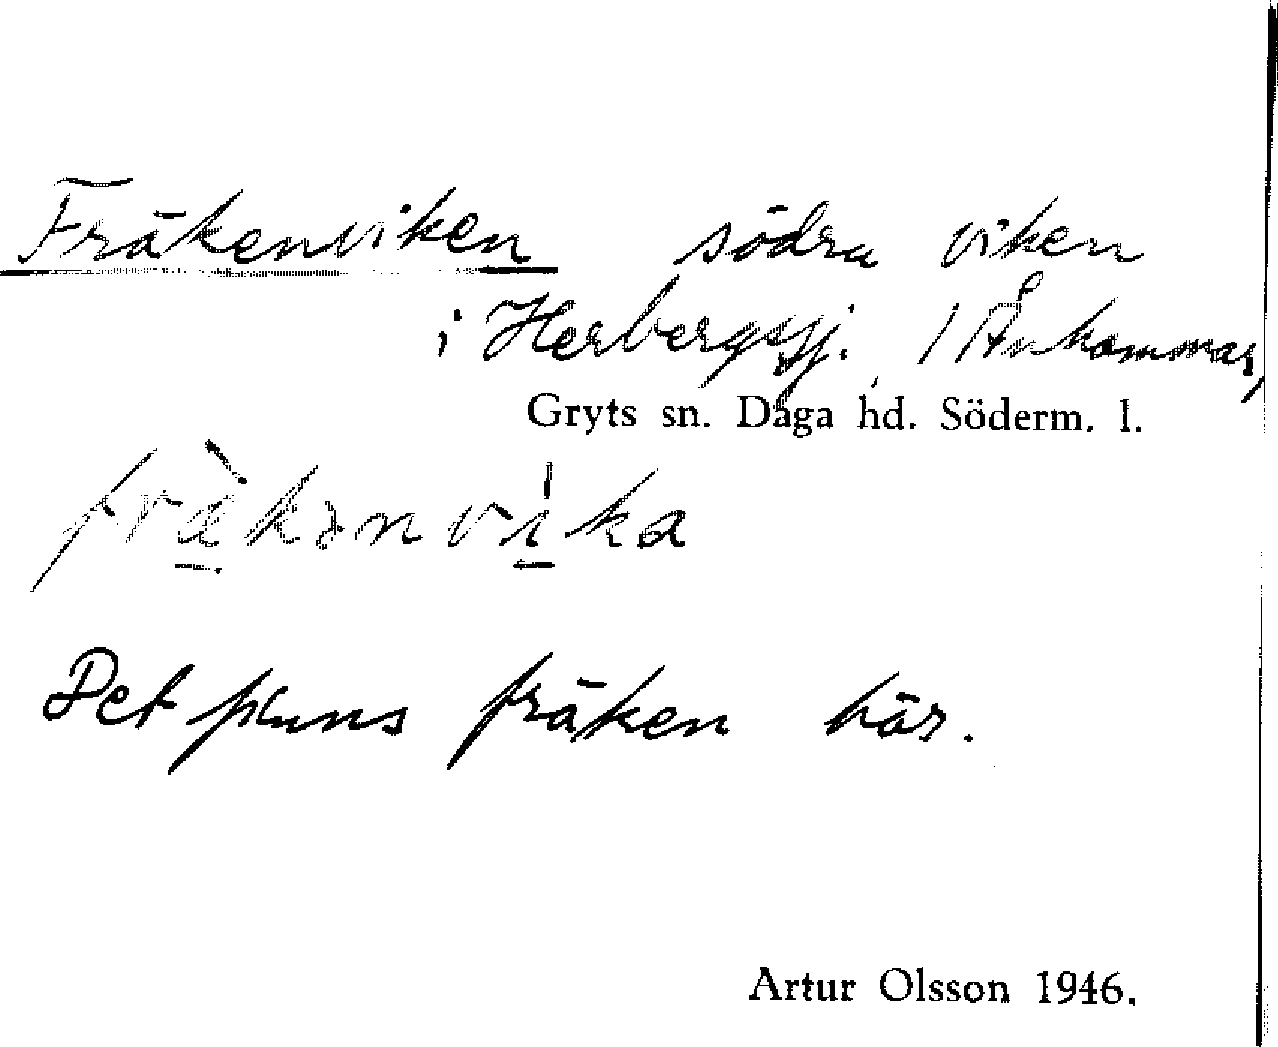 Fräkenviken södra viken
i Herbergssj. / Ånhammar,
Gryts sn. Daga hd. Söderm. l.
fræ̀kənvi̍ka
Det finns fräken här.
Artur Olsson 1946.